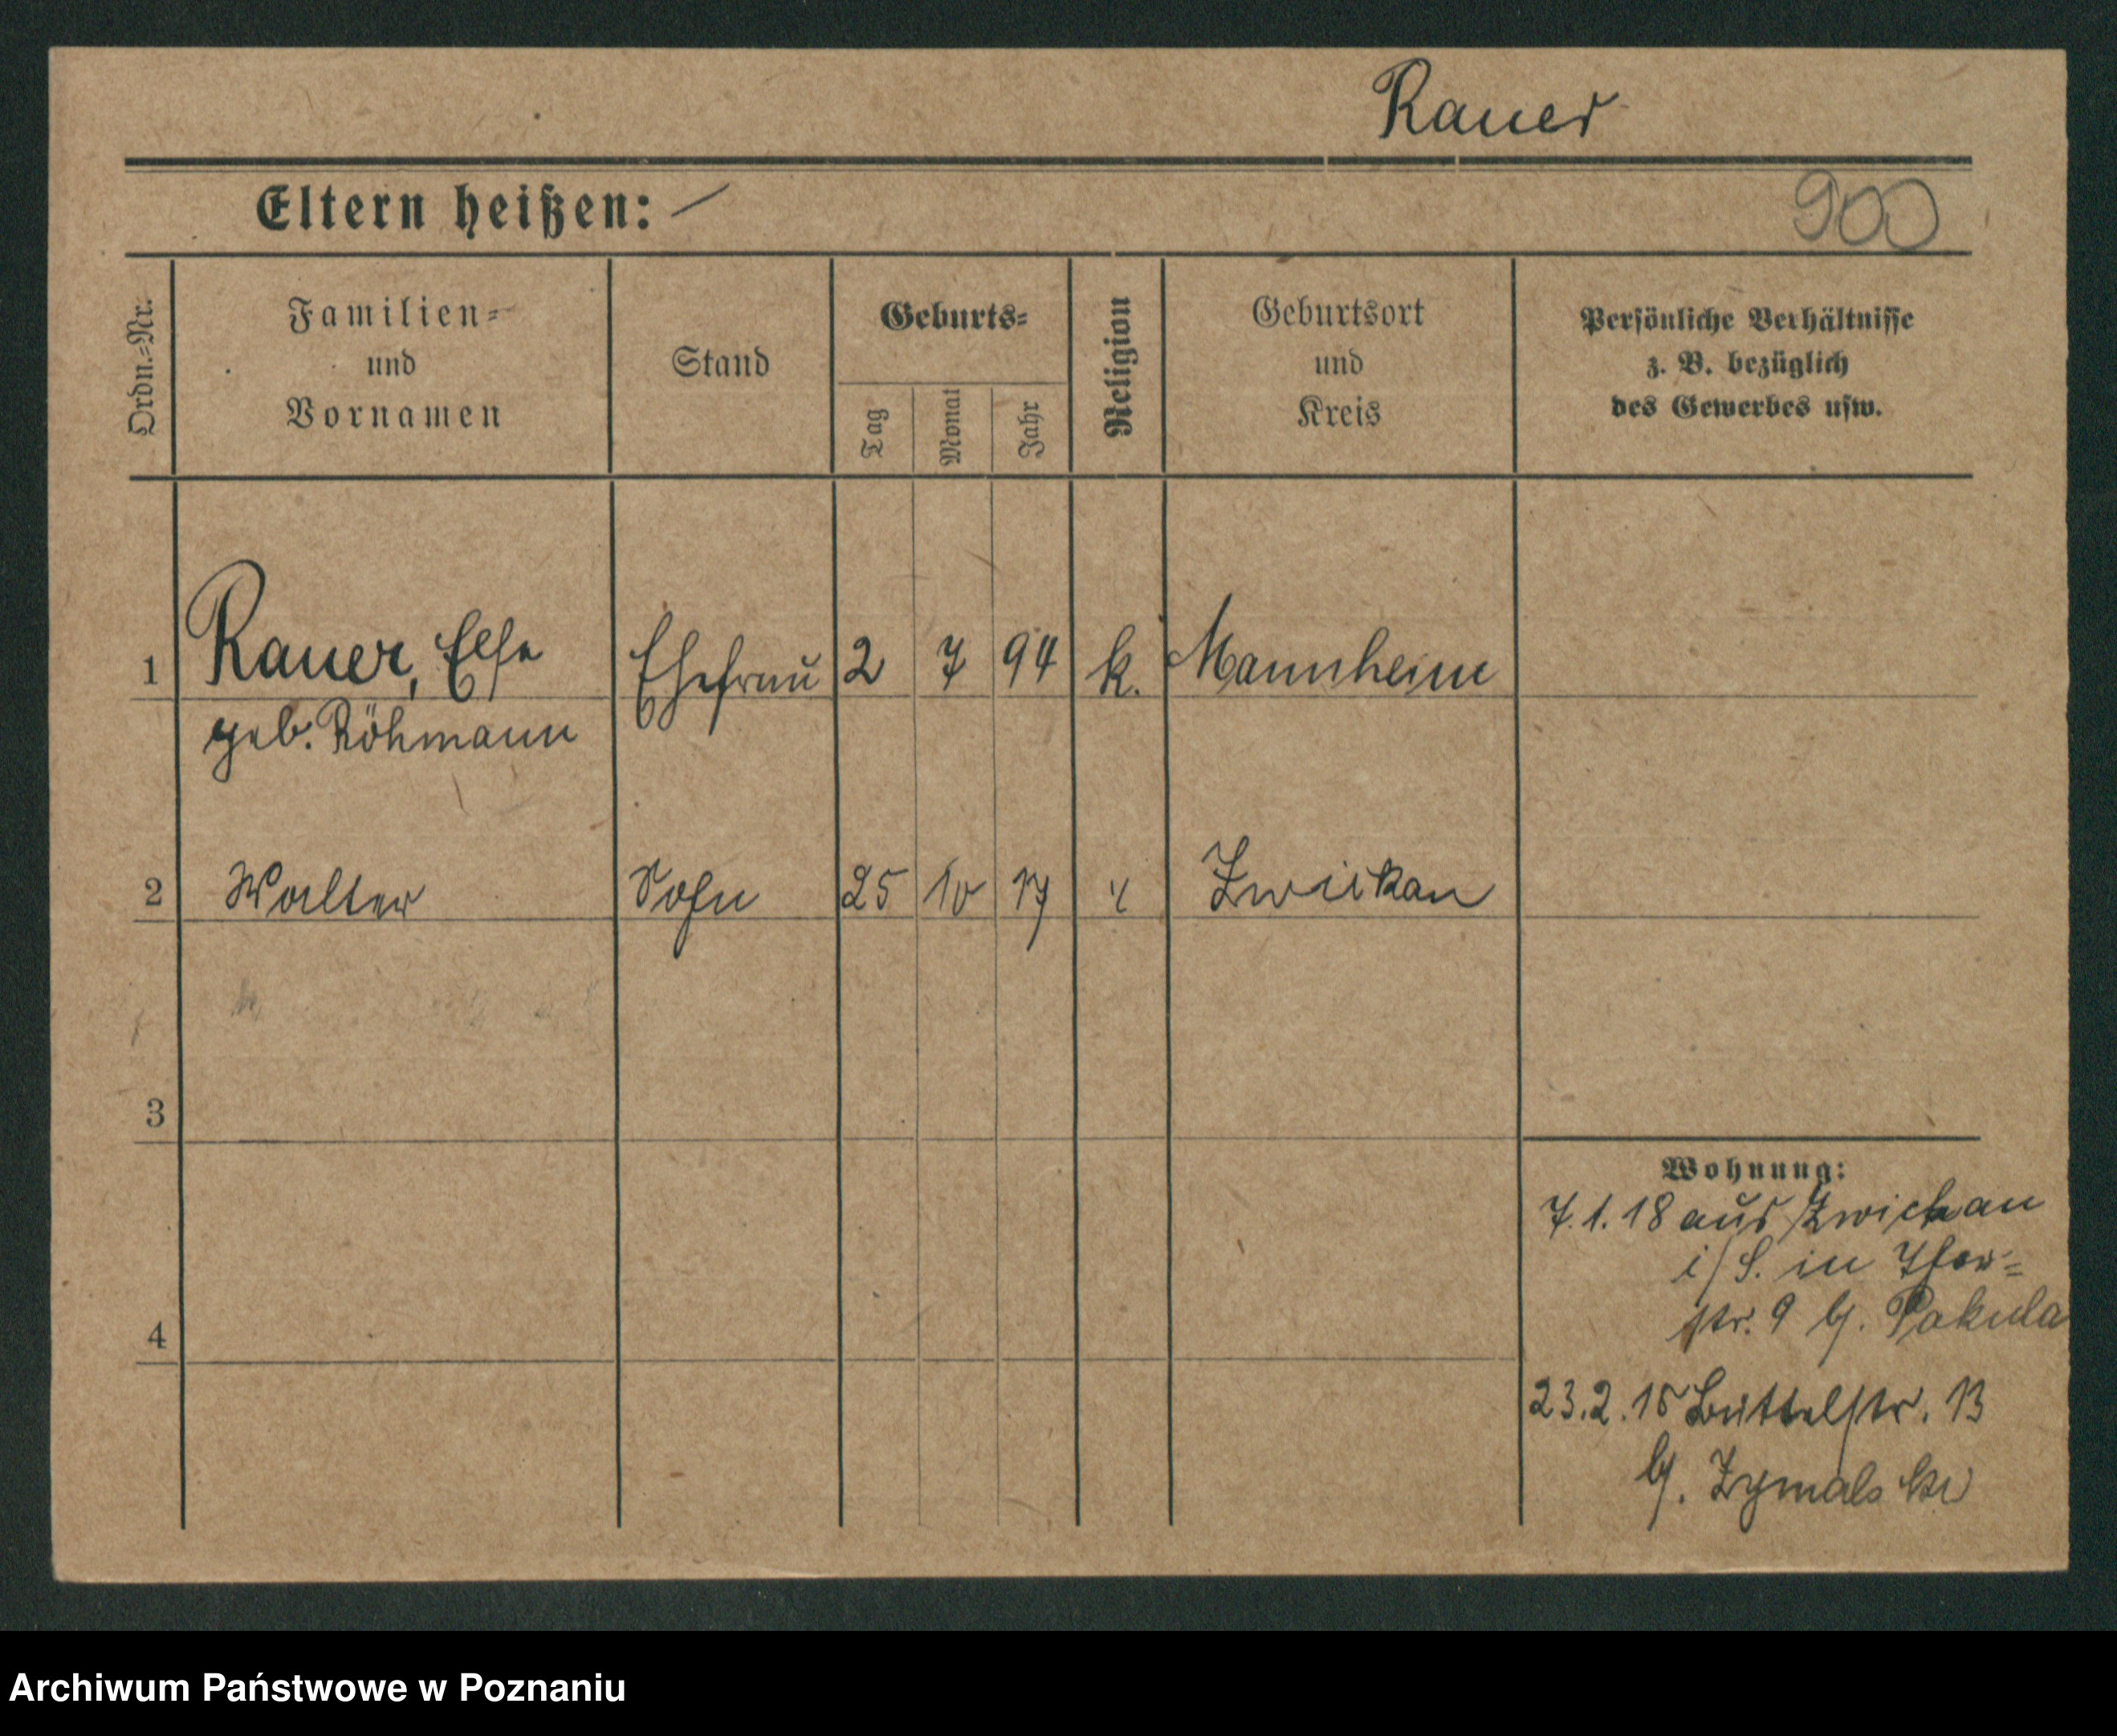 Rauer
Eltern heißen: —
900
Ordn.=Nr.
Familien=
und
Vornamen
Stand
Geburts=
Tag
Monat
Jahr
Religion
Geburtsort
und
Kreis
Persönliche Verhältnisse
z. B. bezüglich
des Gewerbes usw.
1 Rauer, Else Ehefrau 2 7 94 k. Mannheim
geb. Röhmann
2 Walter Sohn 25 10 17 Zwickau
3
4
Wohnung:
7.1.18 aus Zwickau
i/S. in
str. 9 bei Pakula
23.2.18 Büttelstr. 13
bei Zymalski
Archiwum Państwowe w Poznaniu